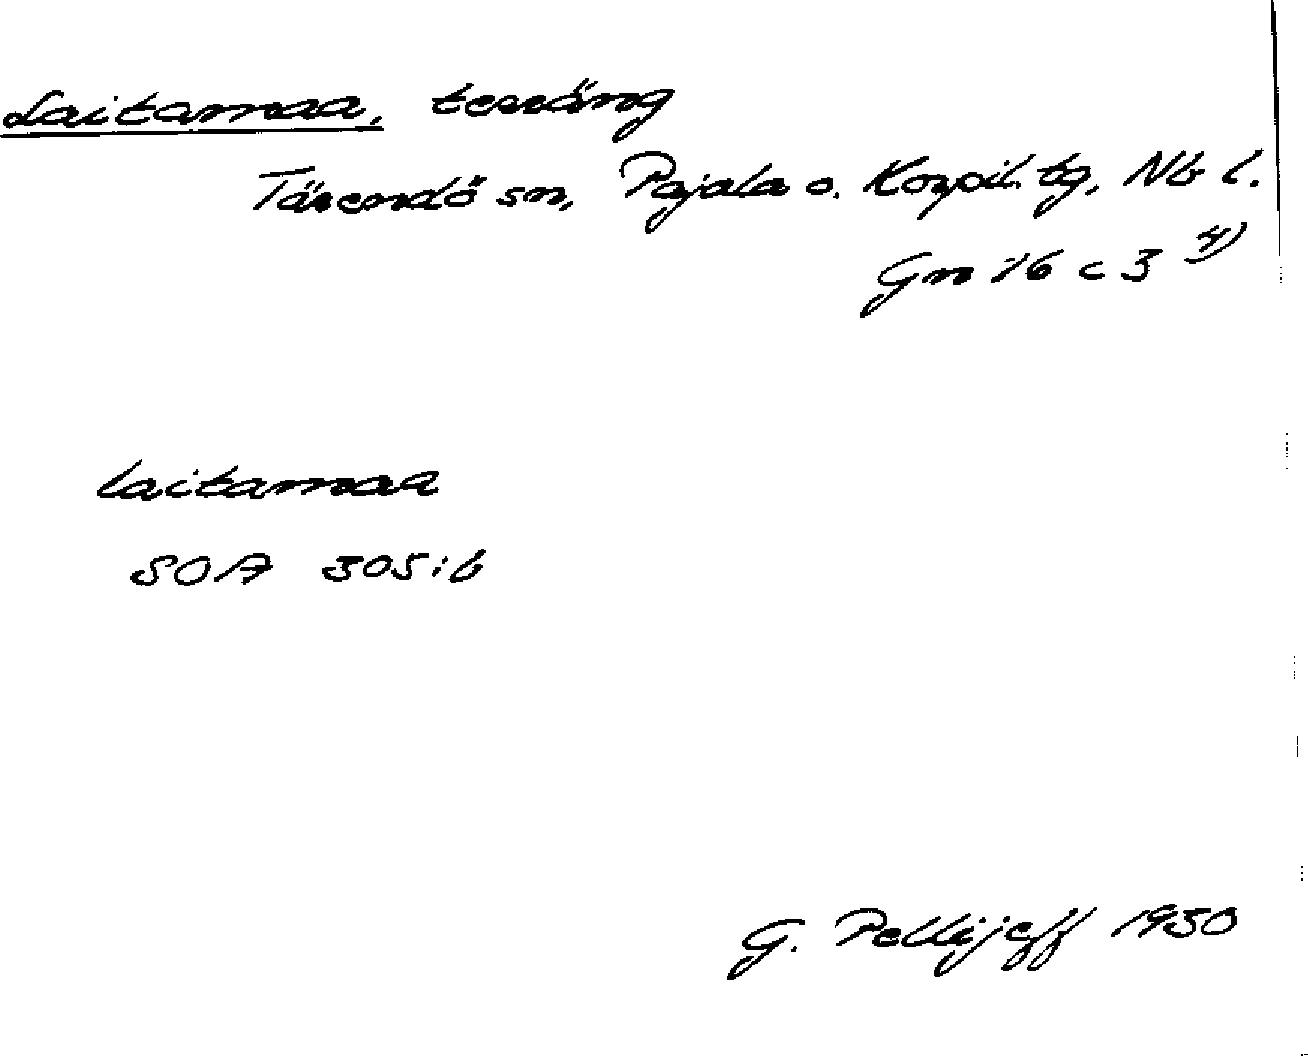 Laitamaa, terräng
Tärendö sn, Pajala o. Korpil. tg, Nb l.
Gm 16 c 3 4)
laitamaa
SOA 305:6
G. Pellijeff 1950